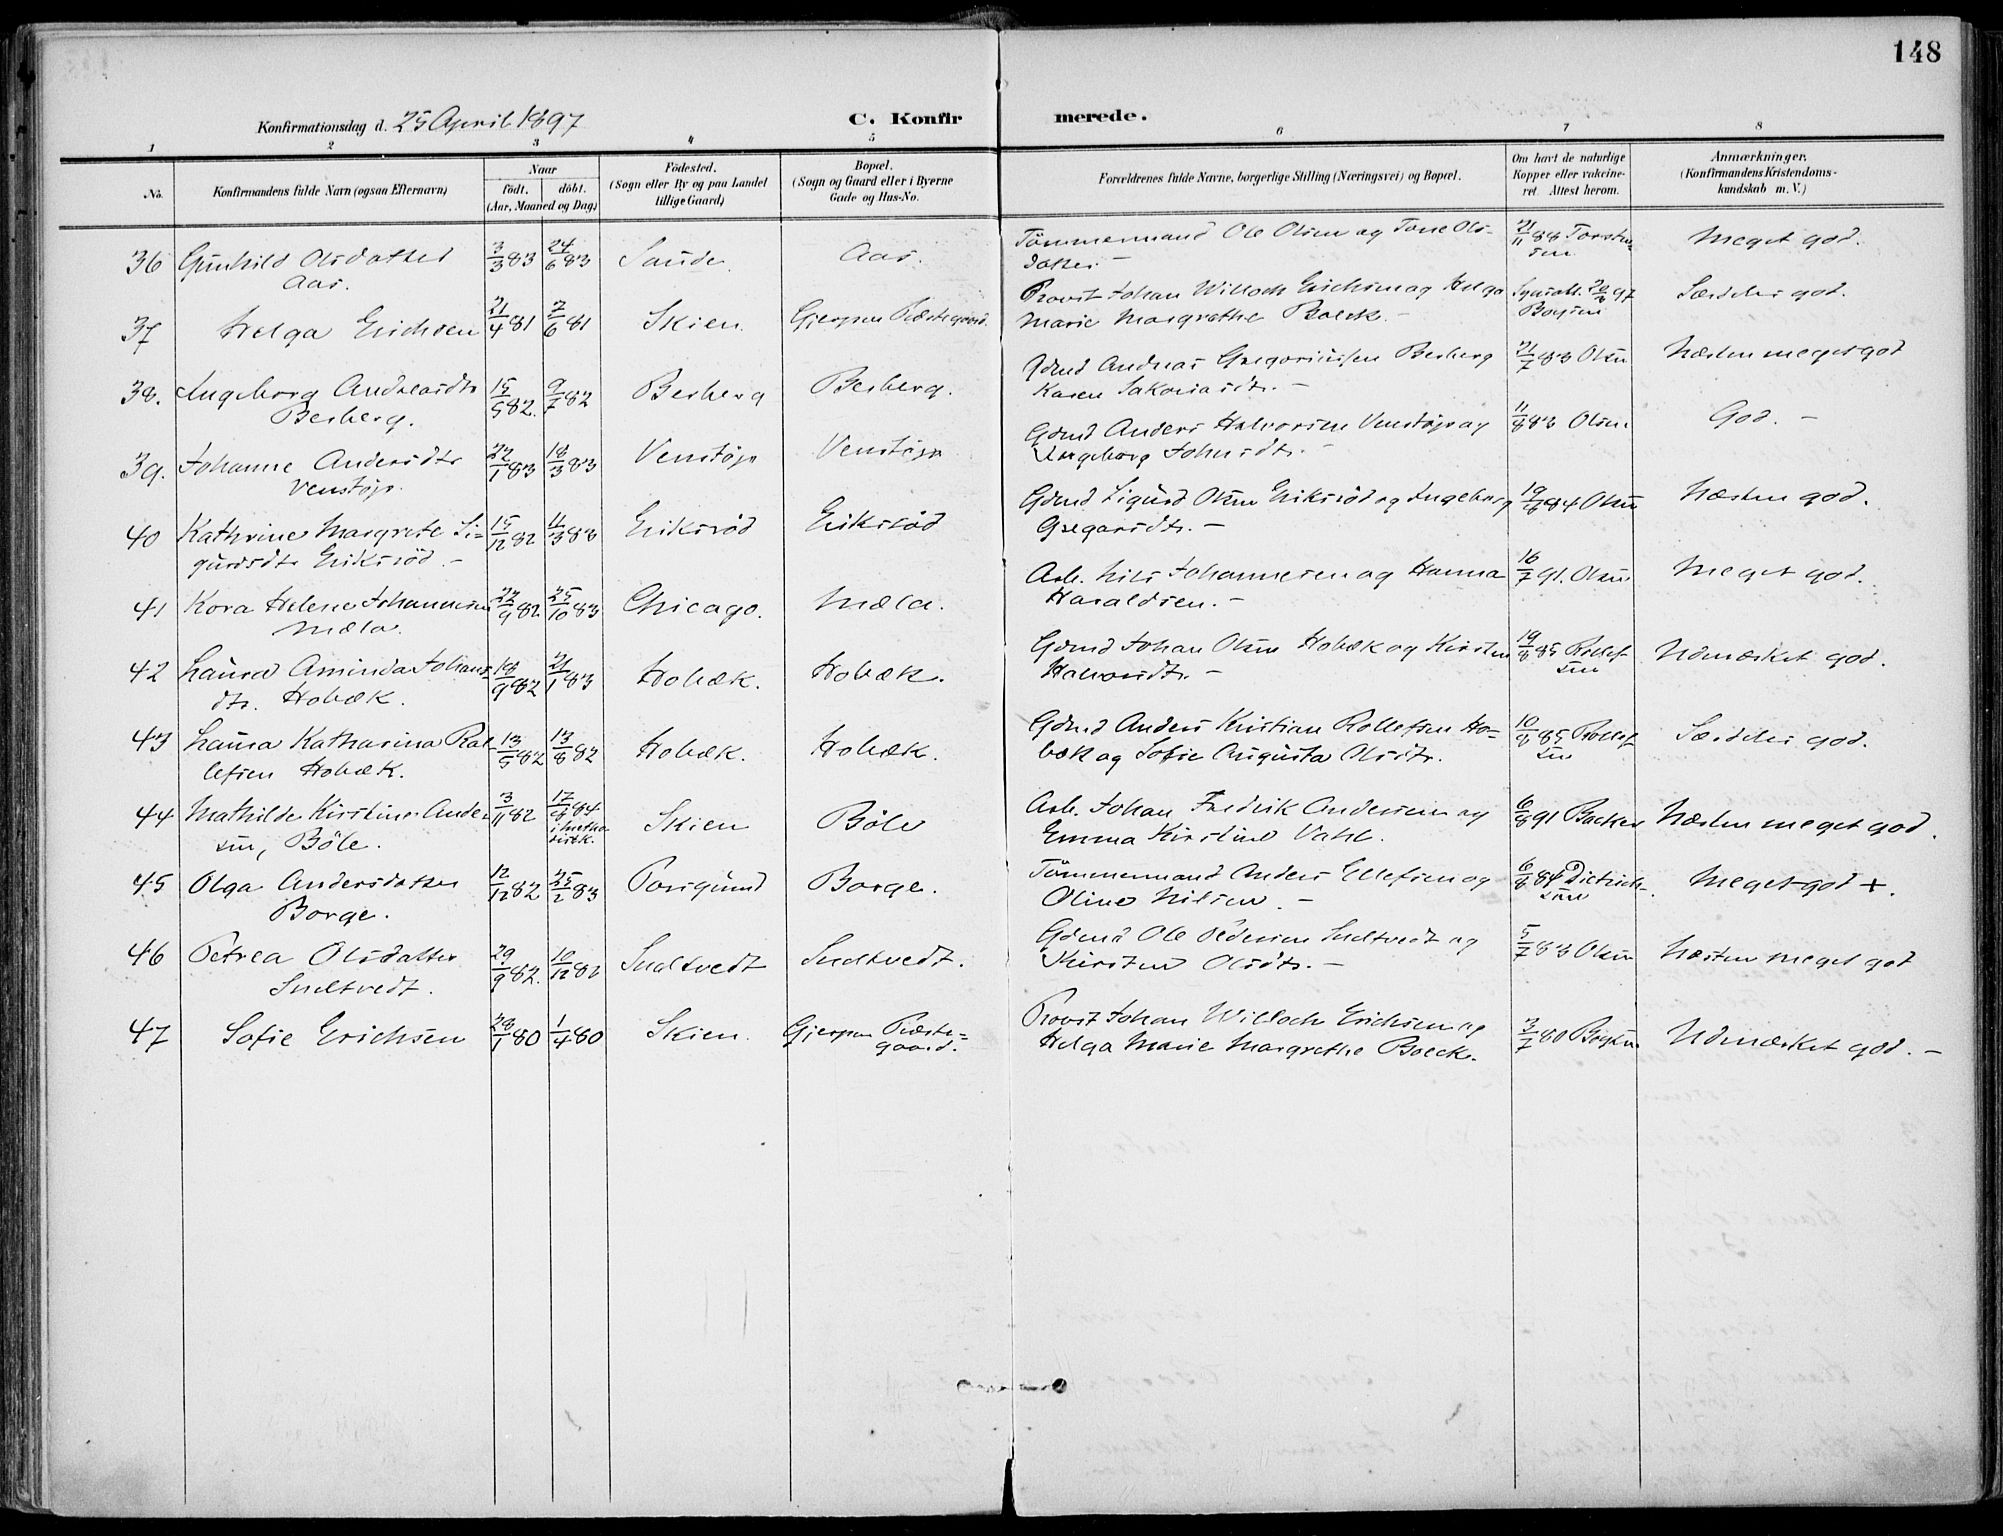 148
Konfirmationsdag d. 25 April 1897
C. Konfirmerede.
1 2 3 4 5 6 7 8
No.
Konfirmandens fulde Navn (ogsaa Efternavn)
Naar
födt. döbt.
(Aar, Maaned og Dag)
Födested.
(Sogn eller By og paa Landet
tillige Gaard)
Bopæl.
(Sogn og Gaard eller i Byerne
Gade og Hus-No.
Forældrenes fulde Navne, borgerlige Stilling (Næringsvei) og Bopæl.
Om havt de naturlige
Kopper eller vakcine-
ret. Attest herom.
Anmærkninger.
(Konfirmandens Kristendoms-
kundskab m. V.)
36 Gunhild Olsdatter 3/3 83 24/6 83 Saude. Aas. Tömmermand Ole Olsen og Tone Ols- 21/11 88 Torsten- Meget god.
Aas. datter. – sen
37 Helga Erichsen 21/4 81 2/6 81 Skien. Gjerpen Præstegaard. Provst Johan Willoch Erichsen og Helga 97 Særdeles god.
Marie Margrethe Boeck. – Boysen
38. Ingeborg Andreasdtr 15/5 82. 9/7 82 Besberg Besberg. Gdmd Andreas Gregoriussen Besberg 21/7 83 Olsen Næsten meget god
Besberg. Karen Sakariasdtr. –
39. Johanne Andersdtr 22/1 83 18/3 83 Venstöp Venstöp Gdmd Anders Halvorsen Venstöp og 11/8 83 Olsen God. –
Venstöp. Ingeborg Johnsdtr. –
40 Kathrine Margrete Si- 15/12 82 11/3 83 Eriksröd Eriksröd Gdmd Sigurd Olsen Eriksröd og Ingeborg 19/8 84 Olsen Næsten god.
gurdsdtr Eriksröd. – Gregarsdtr. –
41 Kora Helene Johannesen 22/9 82 25/10 83 Chicago. Mæla. Arb. Nils Johannesen og Hanna 16/7 91. Olsen Meget god.
Mæla. Haraldsen. –
42 Laura Aminda Johans- 18/9 82 21/1 83 Hobæk. Hobæk. Gdmd Johan Olsen Hobæk og Kirsten 19/8 85 Rollef- Udmærket god.
dtr. Hobæk. Halvorsdtr. – sen
43 Laura Katharina Rol- 13/5 82 13/8 82 Hobæk. Hobæk. Gdmd Anders Kristian Rollefsen Ho- 10/8 85 Rollef- Særdeles god.
lefsen Hobæk. bæk og Sofie Augusta Olsdtr. sen
44 Mathilde Kirstine Ander- 3/11 82 17/8 84 Skien Böle Arb. Johan Fredrik Andersen og 6/8 91 Backer Næsten meget god.
sen, Böle. i Metho- Emma Kirstine Vahl.
distk.
45 Olga Andersdatter 12/12 82 25/2 83 Porsgrund Borge. Tömmermand Anders Ellefsen og 6/8 84 Dietrich- Meget god +.
Borge. Oline Nilsen. – sen
46 Petrea Olsdatter 29/9 82. 10/12 82 Sneltvedt Sneltvedt. Gdmd Ole Pedersen Sneltvedt og 5/7 83 Olsen Næsten meget god
Sneltvedt. Kirsten Olsdtr. –
47 Sofie Erichsen 28/1 80 1/4 80 Skien. Gjerpen Præste- Provst Johan Willoch Erichsen og 3/7 80 Boysen Udmærket god. –
gaard. Helga Marie Margrethe Boeck.